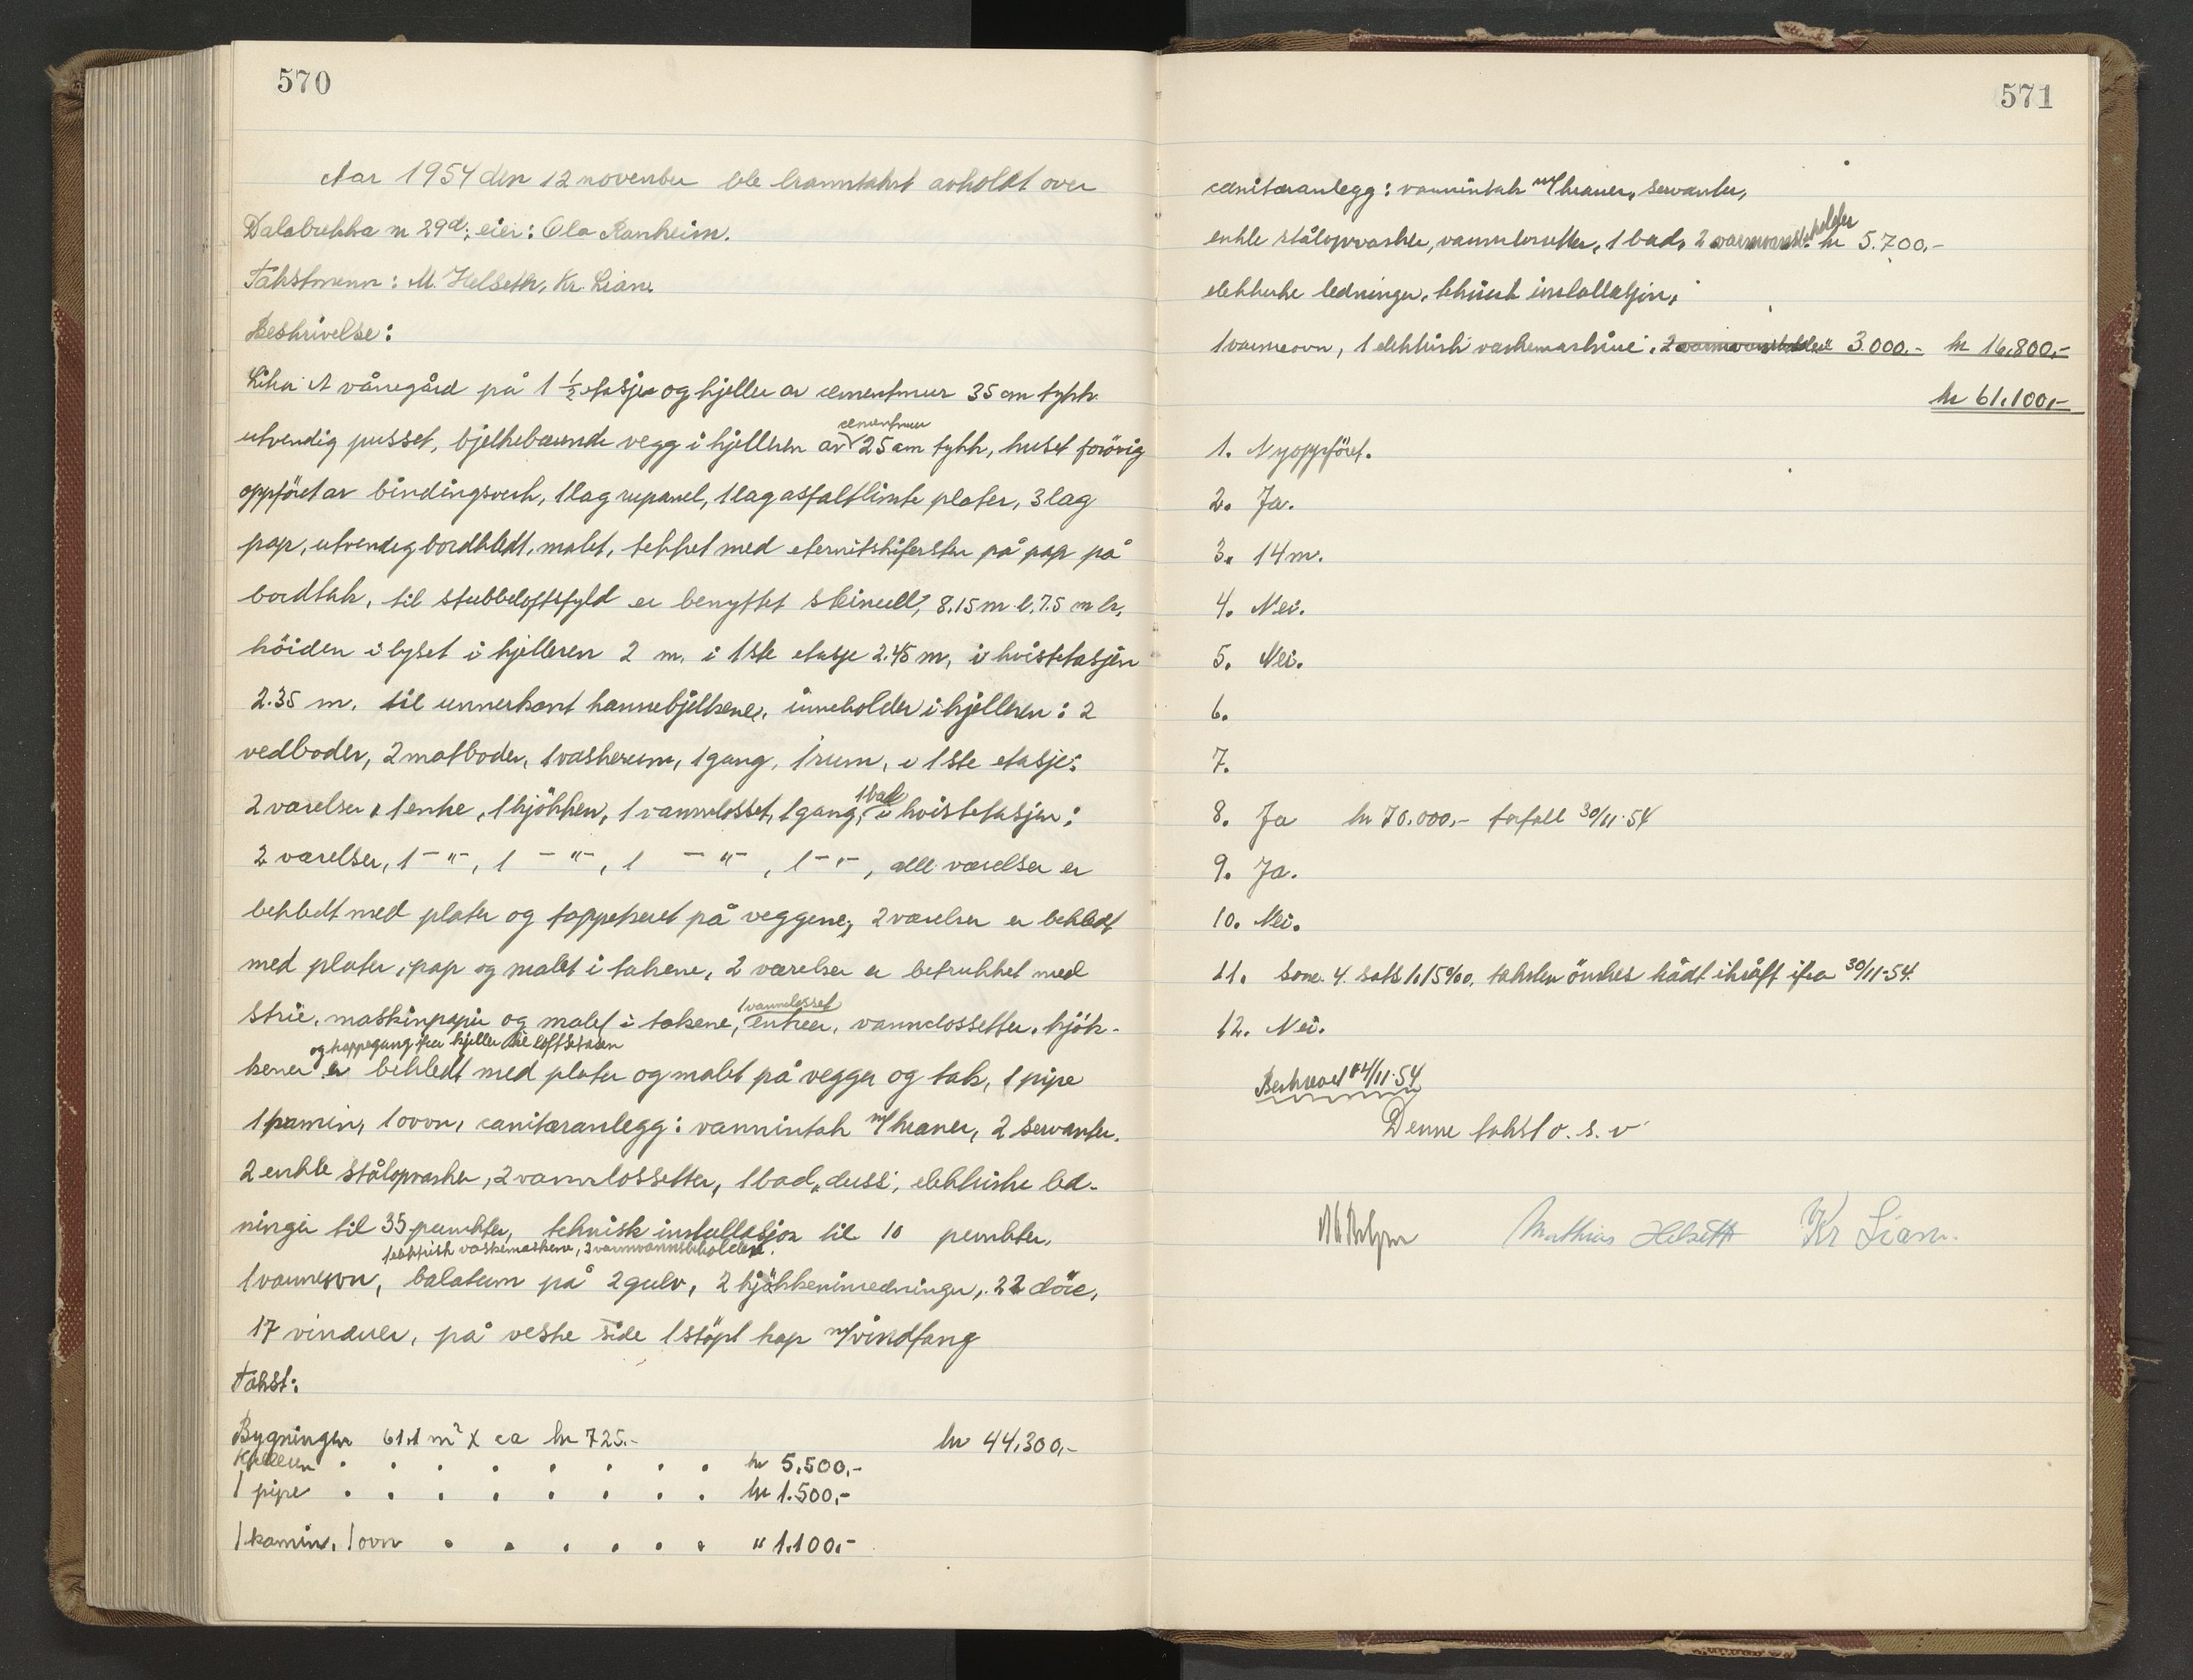 570
Aar 1954 den 12 november ble branntakst avholdt over
Dalabrekka nr 29d; eier: Ola Ranheim.
Takstmenn: M. Helseth, Kr. Lian.
Beskrivelse:
Litra A vånegård på 1 1/2 etasje og kjeller av cementmur 35 cm tykk
utvendig pusset, bjelkebærende vegg i kjelleren av cementmur 25 cm tykk, huset forövrig
oppföret av bindingsverk, 1 lag rupanel, 1 lag asfaltlimte plater, 3 lag
pap, utvendig bordkledt, malet, tekket med eternitskifersten på pap på
bordtak, til stubbeloftsfyld er benyttet steinull, 8.15 m l. 7.5 m br.
höiden i lyset i kjelleren 2 m. i 1ste etasje 2.45 m, i kvistetasjen
2.35 m. til unnerkant hannebjelkene, inneholder i kjelleren: 2
vedboder, 2 matboder, 1 vaskerum, 1 gang, 1 rum, i 1ste etasje:
2 værelser, 1 entre, 1 kjökken, 1 vannclosset, 1 gang, 1 bad i kvistetasjen:
2 værelser, 1 -"-, 1 -"-, 1 -"-, 1 -"-, alle værelser er
bekledt med plater og tappetseret på veggene, 2 værelser er bekledt
med plater, pap og malet i takene, 2 værelser er betrukket med
strie, maskinpapir og malet i takene, 1 vannclosset entreer, vannclossetter, kjök-
kener og trappegang fra kjeller til loftsetasen er bekledt med plater og malet på vegger og tak, 1 pipe
1 kamin, 1 ovn, canitæranlegg: vannintak m/kraner, 2 servanter.
2 enkle stålopvasker, 2 vannclossetter, 1 bad, dusj, elektriske led-
ninger til 35 punkter, teknisk installasjon til 10 punkter,
1 elektrisk vaskemaskine, 2 varmvannsbeholdere.
1 varmeovn, balatum på 2 gulv, 2 kjökkeninredninger, 22 döre,
17 vinduer, på vestre side 1 stöpt trap m/vindfang
Takst:
Bygningen 61.1 m² x ca kr 725.- kr 44.300,-
Kjelleren . . . . . . . . kr 5.500,-
1 pipe . . . . . . . . kr 1.500,-
1 kamin, 1 ovn . . . . . . " 1.100,-
571
canitæranlegg: vannintak m/kraner, servanter,
enkle stålopvasker, vannclossetter, 1 bad, 2 varmvannsbeholder kr 5.700,-
elektriske ledninger, teknisk installasjon,
1 varmeovn, 1 elektrisk vaskemaskine, 2 varmvannsbeholdere 3.000.- kr 16,800,-
kr 61.100,-
1. Nyoppföret.
2. Ja.
3. 14 m.
4. Nei.
5. Nei.
6.
7.
8. Ja kr 70.000,- forfall 30/11-54
9. Ja.
10. Nei.
11. Sone 4. sats 1.15‰, taksten önskes trådt ikraft ifra 30/11-54.
12. Nei.
Beskrevet 12/11-54
Denne takst o. s. v
Mathias Helseth Kr Lian.